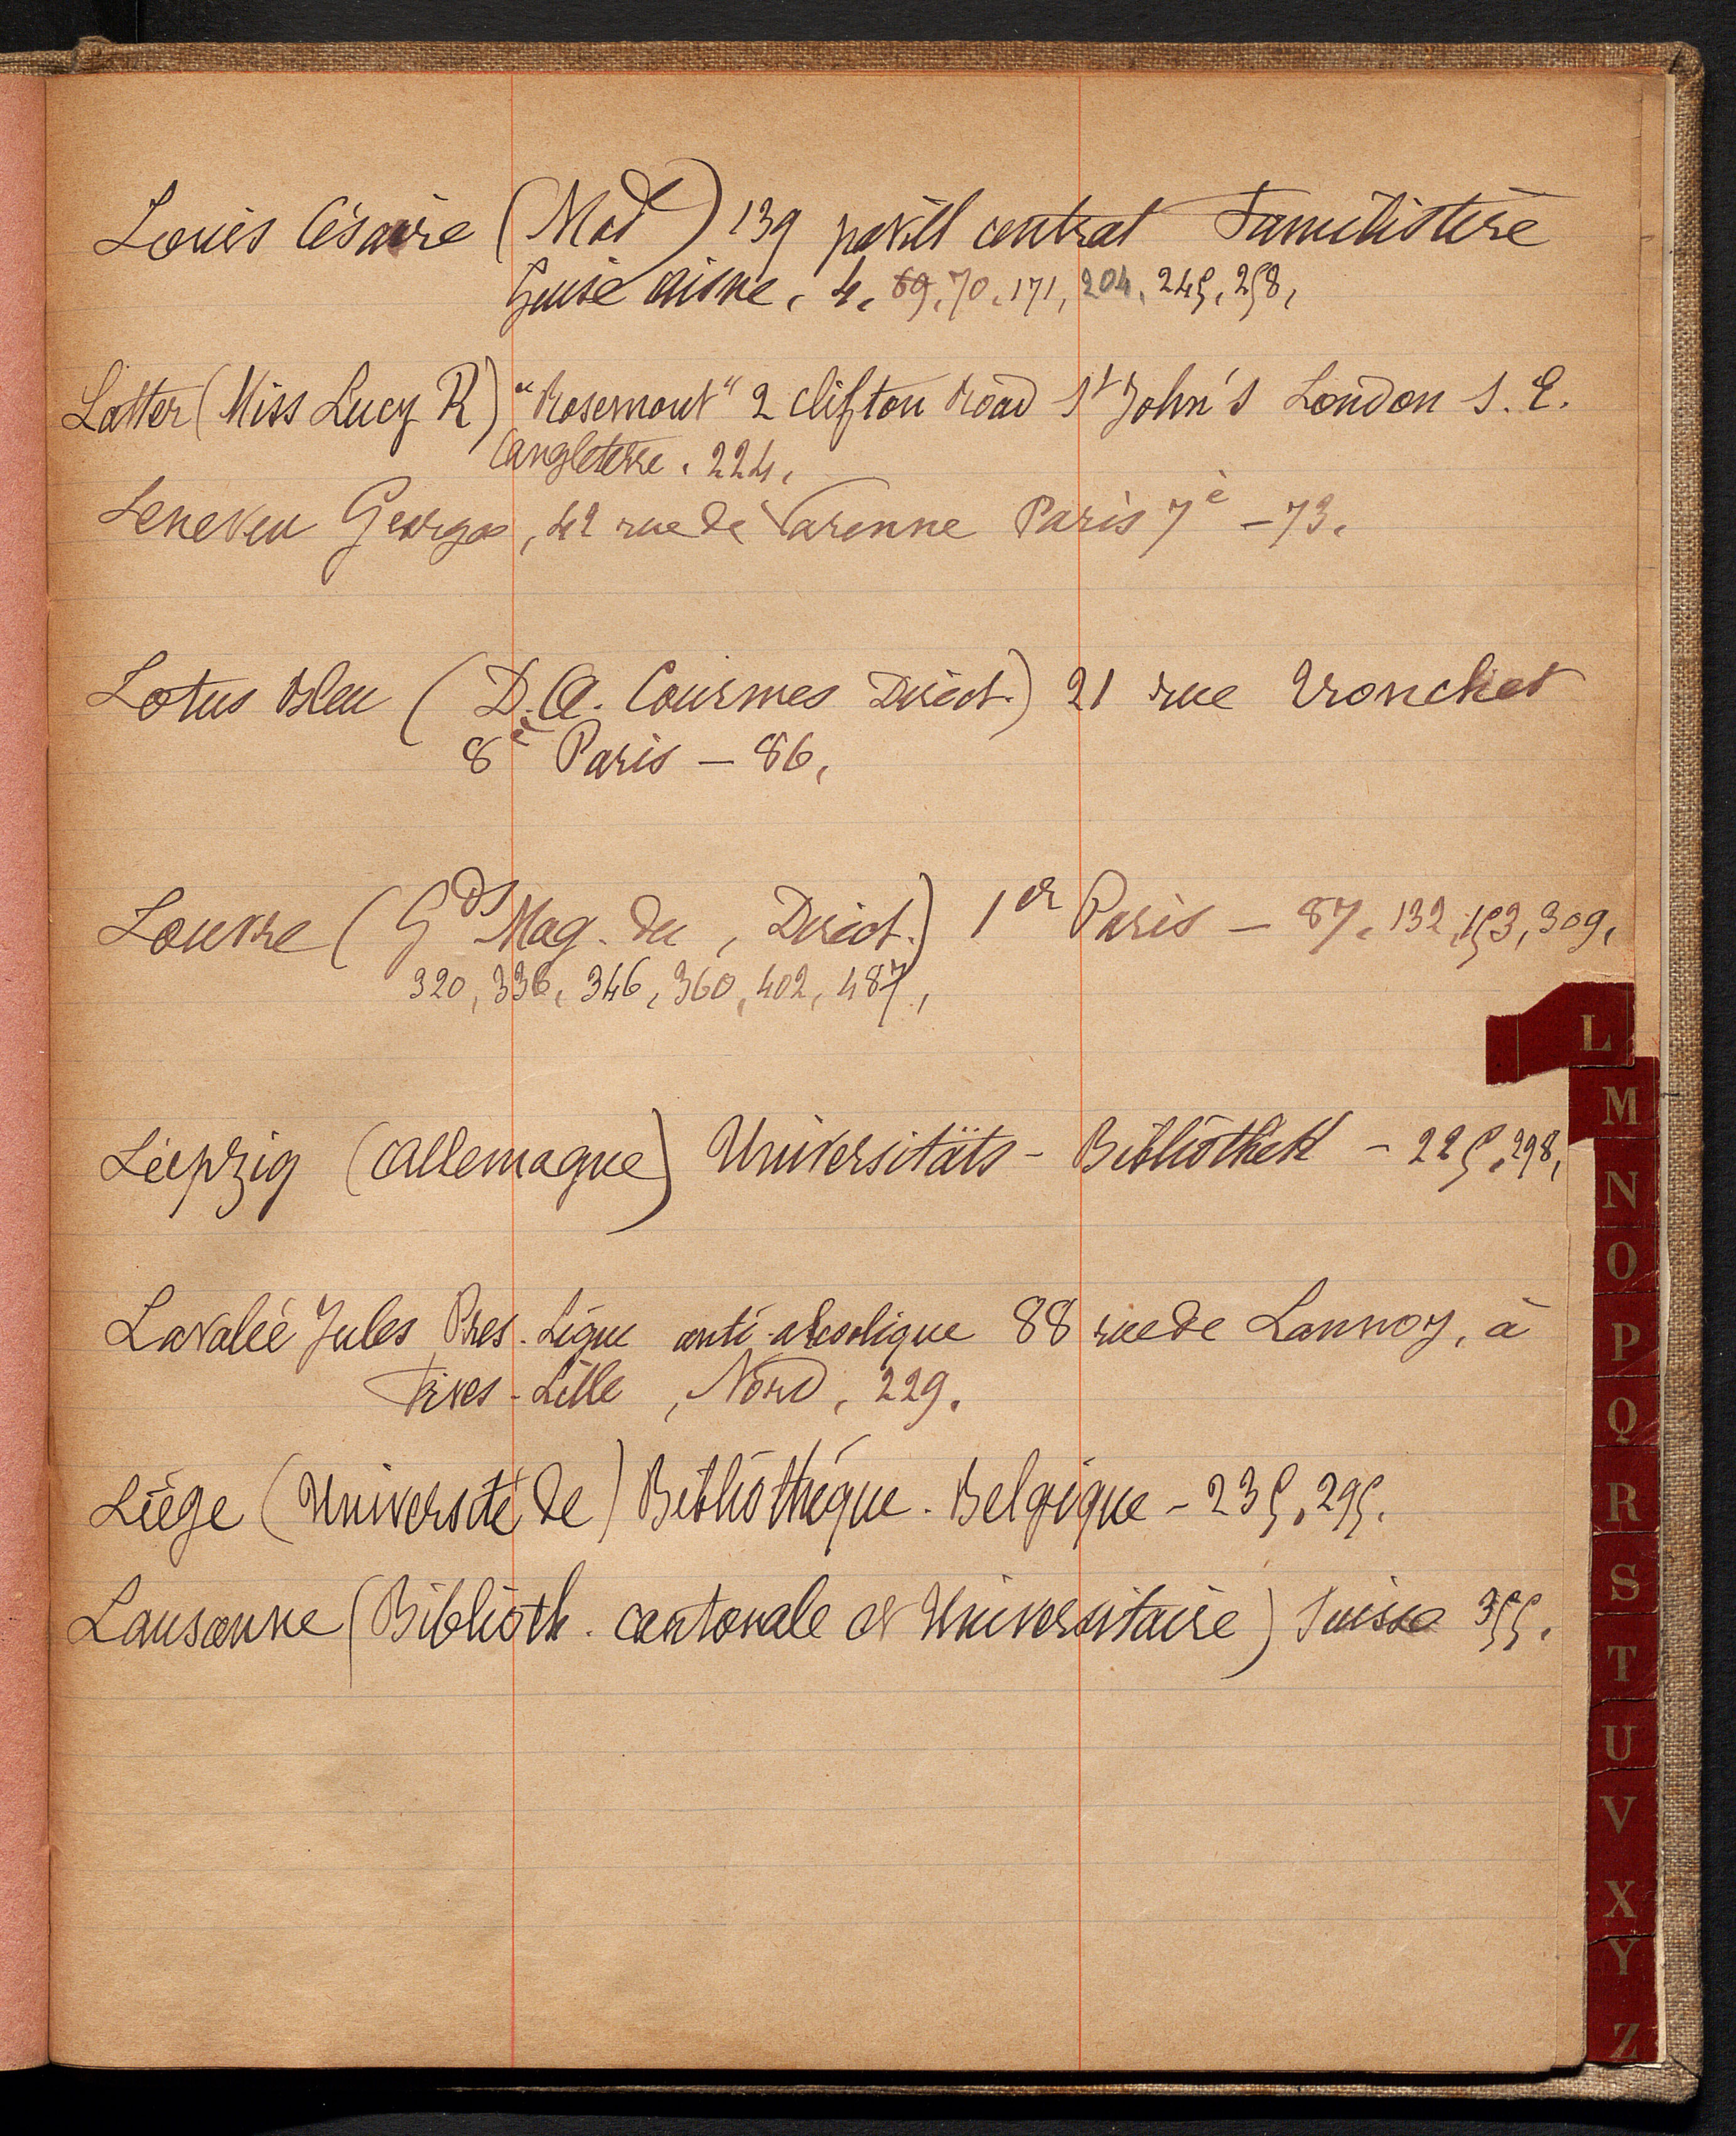 Louis Césaire (Mad) 139 pavill central Familistère
Guise Aisne, 4, 69, 70, 171, 204, 245, 258,
Latter (Miss Lucy R) "Rosemont" 2 Clifton Road St John's London S. E.
Angleterre. 224,
Leneveu Georges, 42 rue de Varenne Paris 7è - 73,
Lotus Bleu (D. A. Courmes Direct.) 21 rue Tronchet
8è Paris - 86,
Louvre (Gds Mag. du, Direct.) 1er Paris - 87, 132, 153, 309,
320, 336, 346, 360, 402, 487,
Leipzig (Allemagne) Universitäts - Bibliothek - 225, 298,
Lavalée Jules Pres. Ligue anti-alcoolique 88 rue de Lannoy, à
Fives - Lille, Nord, 229.
Liège (Université de) Bibliothèque. Belgique - 235, 295.
Lausanne (Biblioth. cantonale et Universitaire) Suisse 355.
L
M
N
O
P
Q
R
S
T
U
V
X
Y
Z